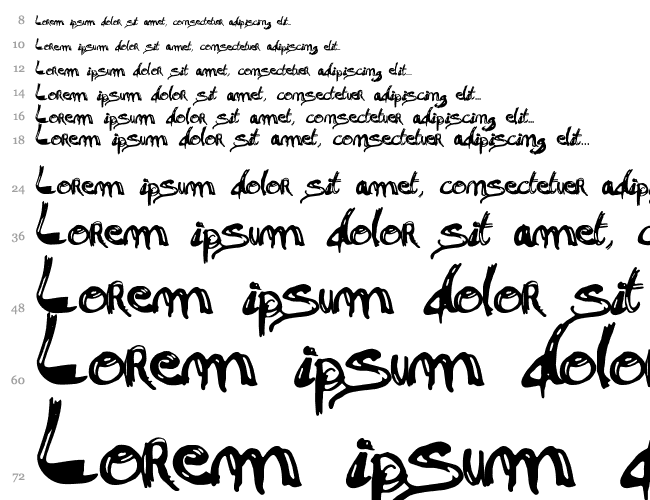 8 Lorem ipsum dolor sit amet, consectetuer adipiscing elit...
10 Lorem ipsum dolor sit amet, consectetuer adipiscing elit...
12 Lorem ipsum dolor sit amet, consectetuer adipiscing elit...
14 Lorem ipsum dolor sit amet, consectetuer adipiscing elit...
16 Lorem ipsum dolor sit amet, consectetuer adipiscing elit...
18 Lorem ipsum dolor sit amet, consectetuer adipiscing elit...
24 Lorem ipsum dolor sit amet, consectetuer adip
36 Lorem ipsum dolor sit amet, c
48 Lorem ipsum dolor sit
60 Lorem ipsum dolo
72 Lorem ipsum d